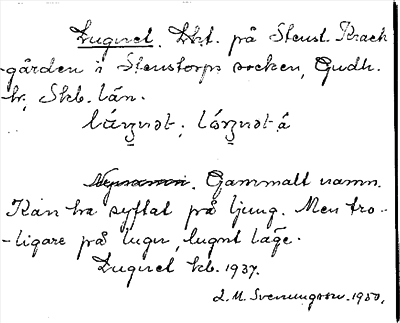 Lugnet. Lht. på Stenst. Präst-
gården i Stenstorps socken, Gudh.
hr, Skb. län.
Gammalt namn.
Kan ha syftat på ljung. Men tro-
-ligare på lugn, lugnt läge.
Lugnet kb. 1937.
L. M. Svenungsson. 1950.